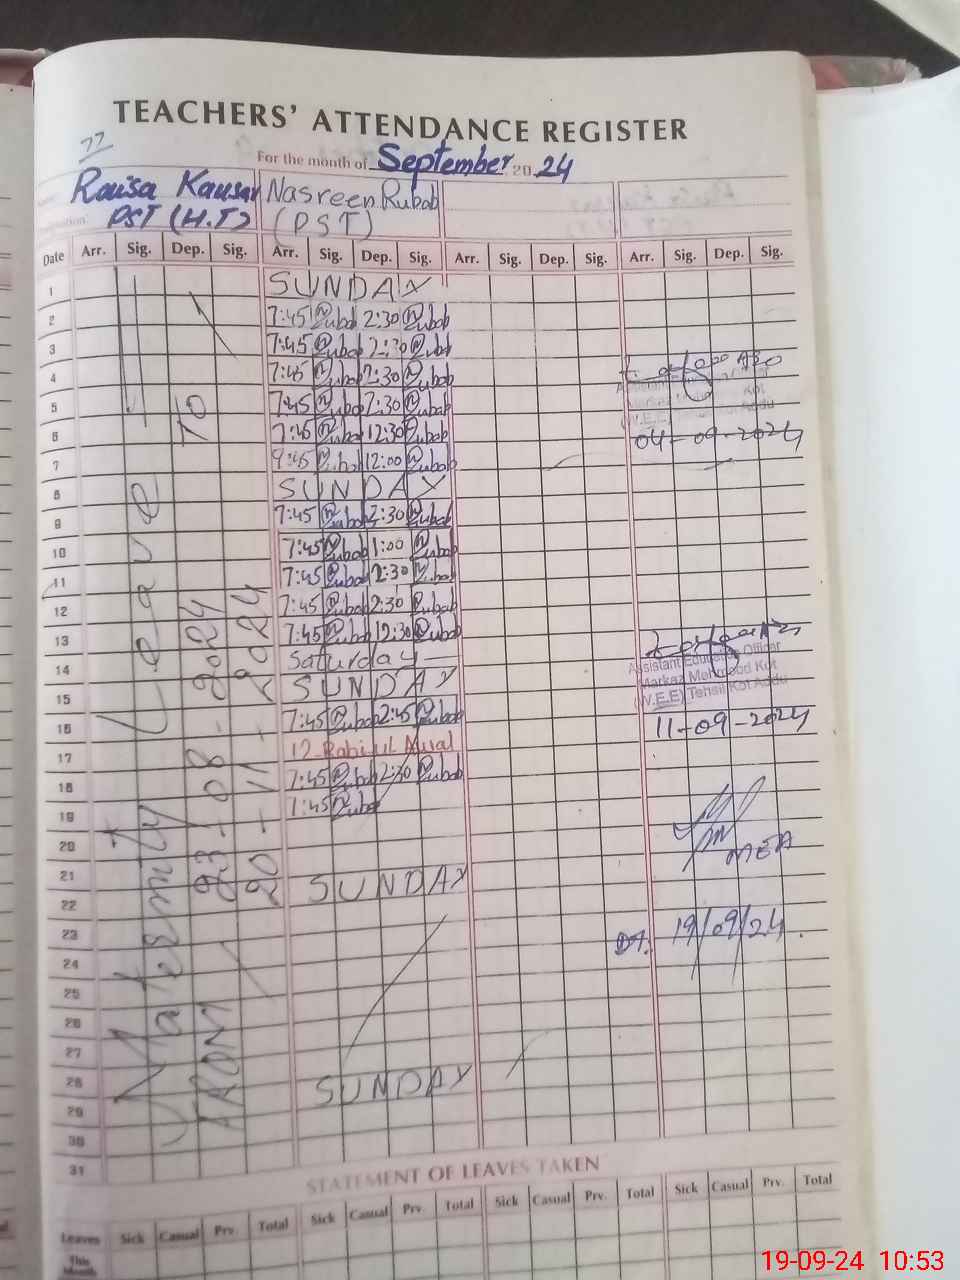 TEACHERS' ATTENDANCE REGISTER
77
For the month of September 2024
Raisa Kausar Nasreen Rubab
PST (H.T) (PST)
Date Arr. Sig. Dep. Sig. Arr. Sig. Dep. Sig. Arr. Sig. Dep. Sig. Arr. Sig. Dep. Sig.
1 SUNDAY
2 7:45 Rubab 2:30 Rubab
3 7:45 Rubab 2:30 Rubab
4 7:45 Rubab 2:30 Rubab
5 7:45 Rubab 2:30 Rubab
6 7:45 Rubab 12:30 Rubab
7 Rubab 12:00 Rubab
8 SUNDAY
9 7:45 Rubab 2:30 Rubab
10 7:45 Rubab 1:00 Rubab
11 7:45 Rubab 2:30 Rubab
12 7:45 Rubab 2:30 Rubab
13 7:45 Rubab 12:30 Rubab
14 Saturday
15 SUNDAY
16 7:45 Rubab 2:45 Rubab
17 12-Rabi-ul Awal
18 7:45 Rubab 2:30 Rubab
19 7:45 Rubab
20
21
22 SUNDAY
23
24
25
26
27
28
29 SUNDAY
30
31
Maternity Leave
FROM 23-08-2024 TO
20-11-2024
Assistant Education Officer
Markaz Mehmood Kot
(W.E.E) Tehsil Kot Addu
04-09-2024
Assistant Education Officer
Markaz Mehmood Kot
(W.E.E) Tehsil Kot Addu
11-09-2024
MEA
Dt. 19/09/24.
STATEMENT OF LEAVES TAKEN
Leaves Sick Casual Prv. Total Sick Casual Prv. Total Sick Casual Prv. Total Sick Casual Prv. Total
This
Month
19-09-24 10:53